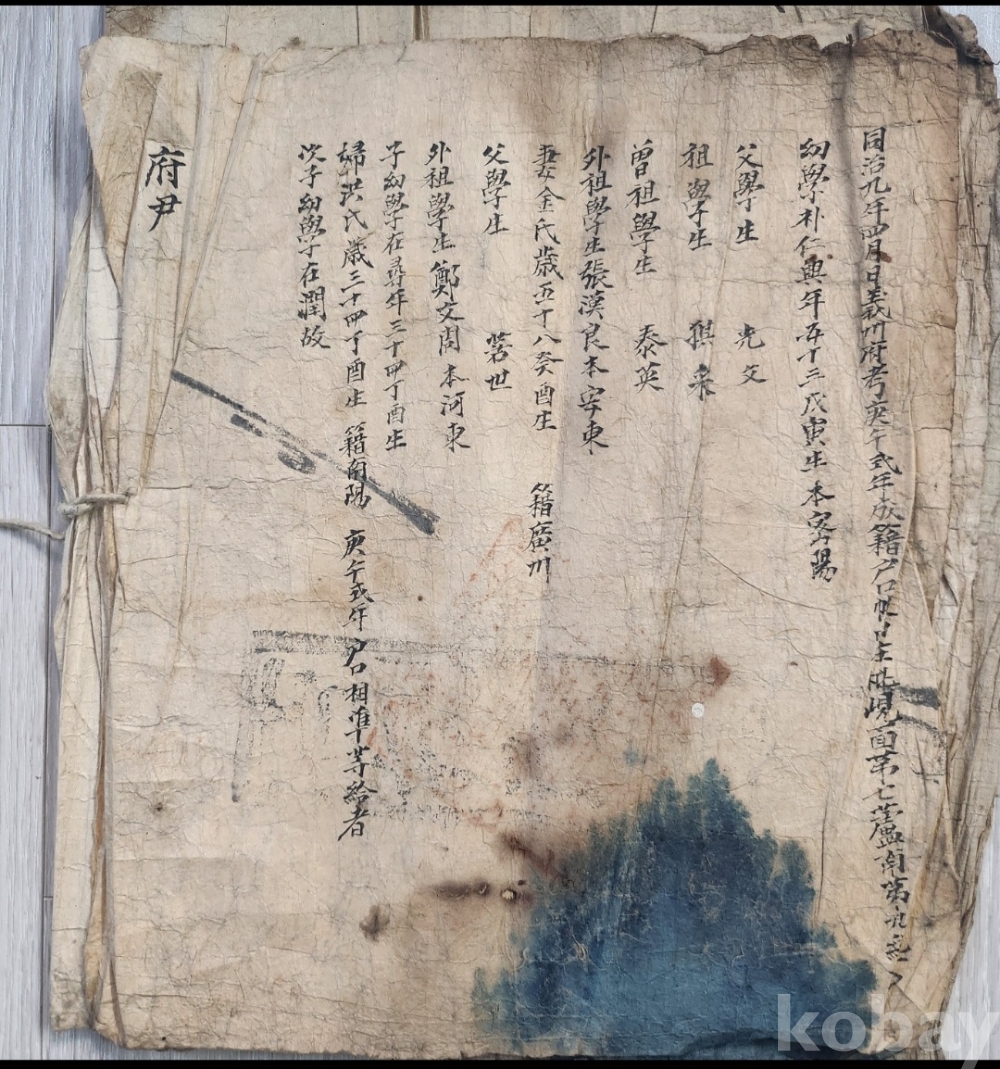 同治九年四月日義州府考庚午式年成籍戶口帳內 峴面第七蘆南第九
幼學朴仁興年五十三戊寅生本密陽
父學生 光文
祖學生 采
曾祖學生 泰英
外祖學生張漢良本寧東
妻金氏歲五十八癸酉生 籍廣州
父學生 世
外祖學生鄭文周本河東
子幼學在尋年三十四丁酉生
婦洪氏歲三十四丁酉生 籍南陽 庚午式年戶口相準等給者
次子幼學在潤故
府尹
kobay